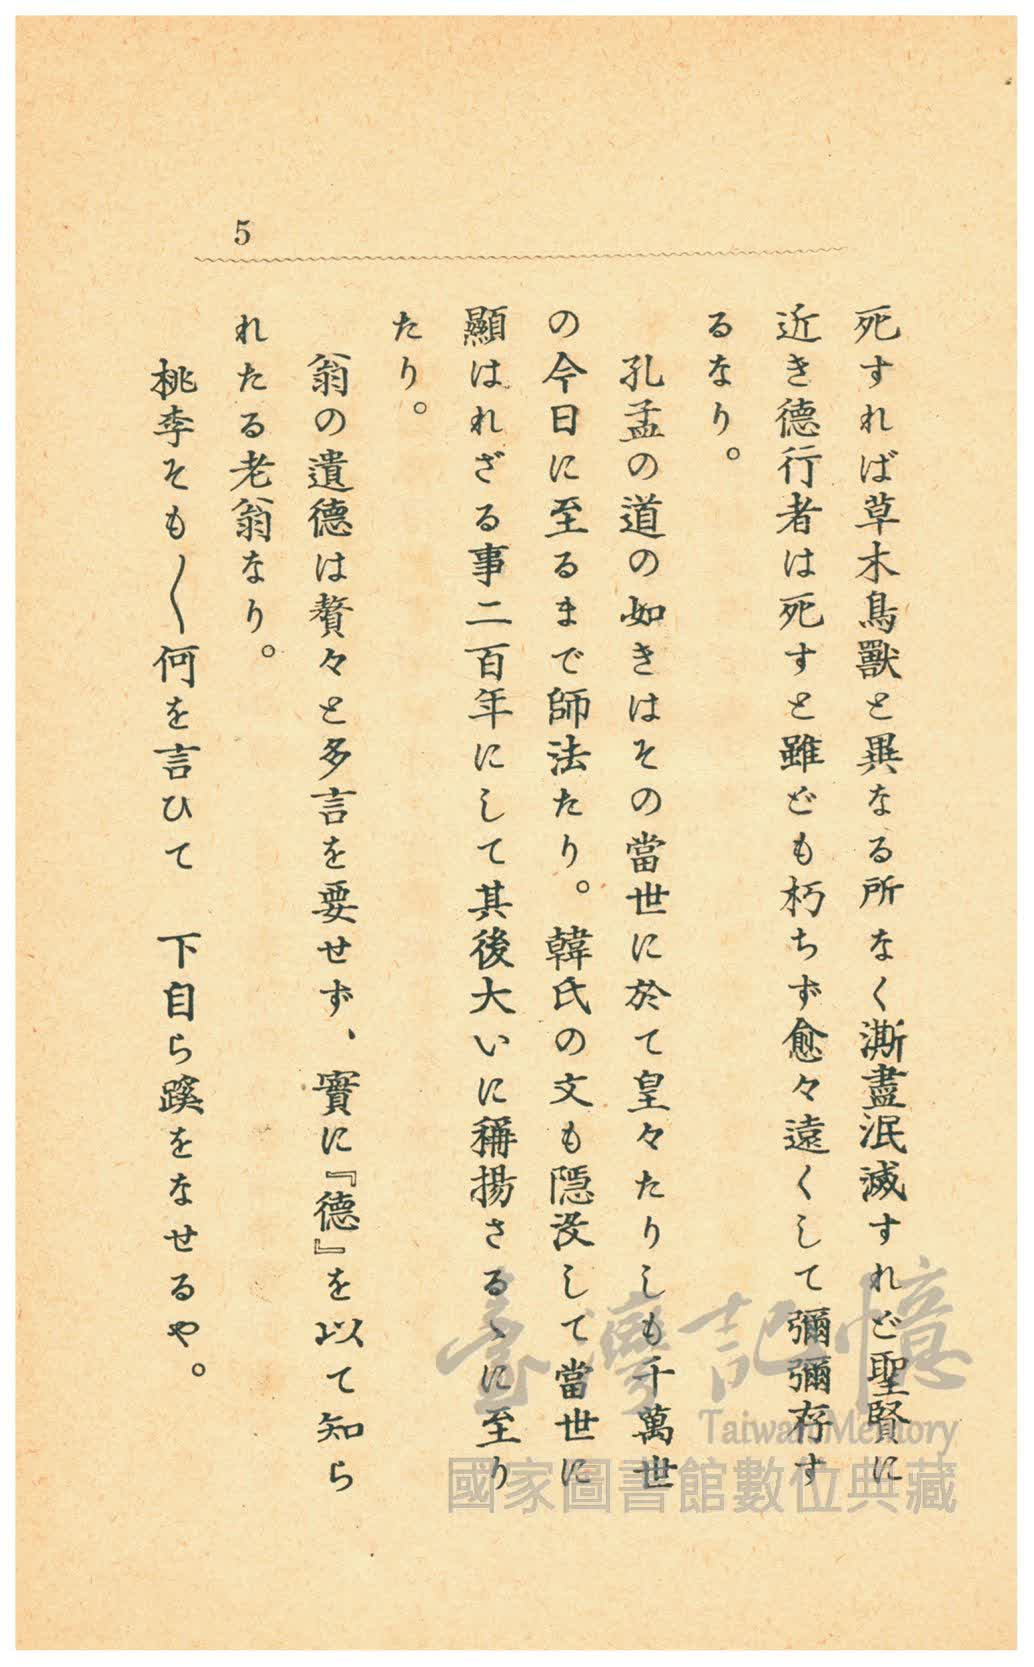 5
死すれば草木鳥獸と異なる所なく澌盡泯滅すれど聖賢に
近き德行者は死すと雖ども朽ちず愈々遠くして彌彌存す
るなり。
孔孟の道の如きはその當世に於て皇々たりしも千萬世
の今日に至るまで師法たり。韓氏の文も隱沒して當世に
顯はれざる事二百年にして其後大いに稱揚さるゝに至り
たり。
翁の遺德は贅々と多言を要せず、實に『德』を以て知ら
れたる老翁なり。
桃李そも〳〵何を言ひて　下自ら蹊をなせるや。
臺灣記憶
Taiwan Memory
國家圖書館數位典藏